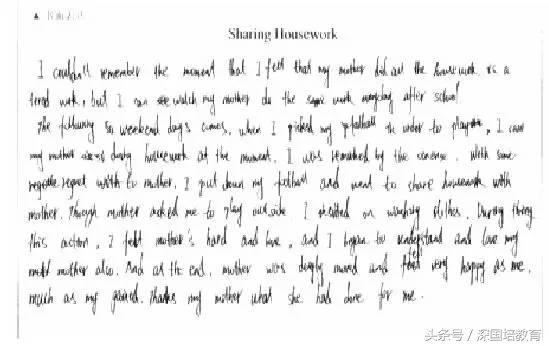 ▲ 书面表达
Sharing Housework
I couldn't remember the moment that I felt that my mother did all the housework is a
tired work, but I can see watch my mother do the same work everyday after school
The following weekend days comes, when I picked my football in order to play, I saw
my mother was doing housework at the moment. I was remarked by the sense. With some
regret to mother, I put down my football and went to share housework with
mother. Though mother asked me to play outside I insisted on washing dishes. During
this action, I felt mother's hard and love, and I began to understand and love my
mother also. And at the end, mother was deeply moved and felt very happy as me.
much as my gained. Thanks my mother what she had done for me.
头条号 / 深国培教育